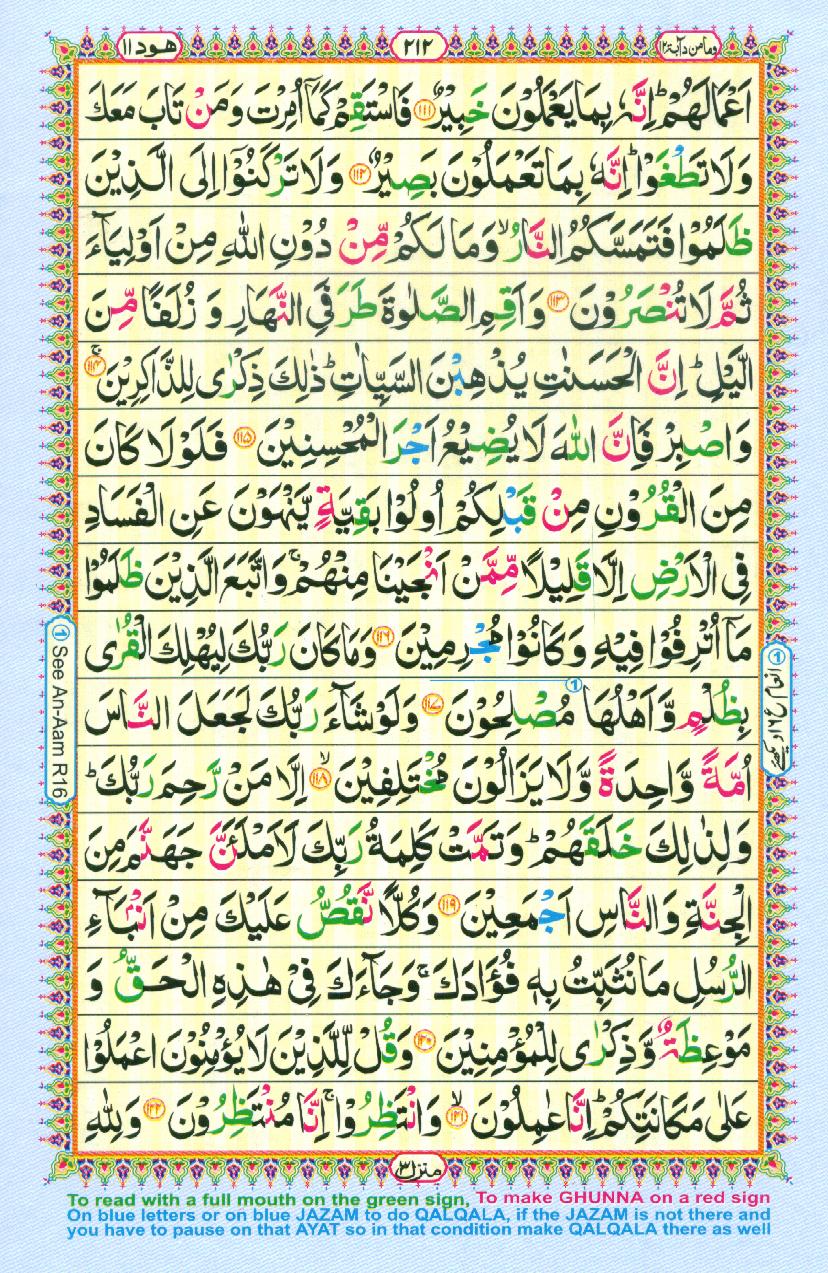 وما من دآبة ١٢
٢١٢
هود ١١
اَعْمَالَهُمْ ؕ اِنَّهٗ بِمَا یَعْمَلُوْنَ خَبِیْرٌ ﴿۱۱۱﴾ فَاسْتَقِمْ كَمَاۤ اُمِرْتَ وَ مَنْ تَابَ مَعَكَ
وَ لَا تَطْغَوْا ؕ اِنَّهٗ بِمَا تَعْمَلُوْنَ بَصِیْرٌ ﴿۱۱۲﴾ وَ لَا تَرْكَنُوْۤا اِلَى الَّذِیْنَ
ظَلَمُوْا فَتَمَسَّكُمُ النَّارُ ۙ وَ مَا لَكُمْ مِّنْ دُوْنِ اللّٰهِ مِنْ اَوْلِیَآءَ
ثُمَّ لَا تُنْصَرُوْنَ ﴿۱۱۳﴾ وَ اَقِمِ الصَّلٰوةَ طَرَفَیِ النَّهَارِ وَ زُلَفًا مِّنَ
الَّیْلِ ؕ اِنَّ الْحَسَنٰتِ یُذْهِبْنَ السَّیِّاٰتِ ؕ ذٰلِكَ ذِكْرٰى لِلذّٰكِرِیْنَ ﴿۱۱۴﴾ۚ
وَ اصْبِرْ فَاِنَّ اللّٰهَ لَا یُضِیْعُ اَجْرَ الْمُحْسِنِیْنَ ﴿۱۱۵﴾ فَلَوْ لَا كَانَ
مِنَ الْقُرُوْنِ مِنْ قَبْلِكُمْ اُولُوْا بَقِیَّةٍ یَّنْهَوْنَ عَنِ الْفَسَادِ
فِی الْاَرْضِ اِلَّا قَلِیْلًا مِّمَّنْ اَنْجَیْنَا مِنْهُمْ ۚ وَ اتَّبَعَ الَّذِیْنَ ظَلَمُوْا
مَاۤ اُتْرِفُوْا فِیْهِ وَ كَانُوْا مُجْرِمِیْنَ ﴿۱۱۶﴾ وَ مَا كَانَ رَبُّكَ لِیُهْلِكَ الْقُرٰى
بِظُلْمٍ وَّ اَهْلُهَا مُصْلِحُوْنَ ﴿۱۱۷﴾ وَ لَوْ شَآءَ رَبُّكَ لَجَعَلَ النَّاسَ
اُمَّةً وَّاحِدَةً وَّ لَا یَزَالُوْنَ مُخْتَلِفِیْنَ ﴿۱۱۸﴾ۙ اِلَّا مَنْ رَّحِمَ رَبُّكَ ؕ
وَ لِذٰلِكَ خَلَقَهُمْ ؕ وَ تَمَّتْ كَلِمَةُ رَبِّكَ لَاَمْلَـَٔنَّ جَهَنَّمَ مِنَ
الْجِنَّةِ وَ النَّاسِ اَجْمَعِیْنَ ﴿۱۱۹﴾ وَ كُلًّا نَّقُصُّ عَلَیْكَ مِنْ اَنْۢبَآءِ
الرُّسُلِ مَا نُثَبِّتُ بِهٖ فُؤَادَكَ ۚ وَ جَآءَكَ فِیْ هٰذِهِ الْحَقُّ وَ
مَوْعِظَةٌ وَّ ذِكْرٰى لِلْمُؤْمِنِیْنَ ﴿۱۲۰﴾ وَ قُلْ لِّلَّذِیْنَ لَا یُؤْمِنُوْنَ اعْمَلُوْا
عَلٰى مَكَانَتِكُمْ ؕ اِنَّا عٰمِلُوْنَ ﴿۱۲۱﴾ۙ وَ انْتَظِرُوْا ۚ اِنَّا مُنْتَظِرُوْنَ ﴿۱۲۲﴾ وَ لِلّٰهِ
1
1 انعام ع ١٦ دیکھئے
1 See An-Aam R16
منزل ٣
To read with a full mouth on the green sign, To make GHUNNA on a red sign
On blue letters or on blue JAZAM to do QALQALA, if the JAZAM is not there and
you have to pause on that AYAT so in that condition make QALQALA there as well